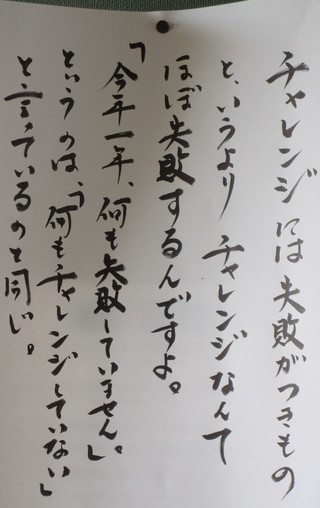 チャレンジには失敗がつきもの
と、いうよりチャレンジなんて
ほぼ失敗するんですよ。
「今年一年、何も失敗していません。」
というのは、「何もチャレンジしていない」
と言っているのと同じ。